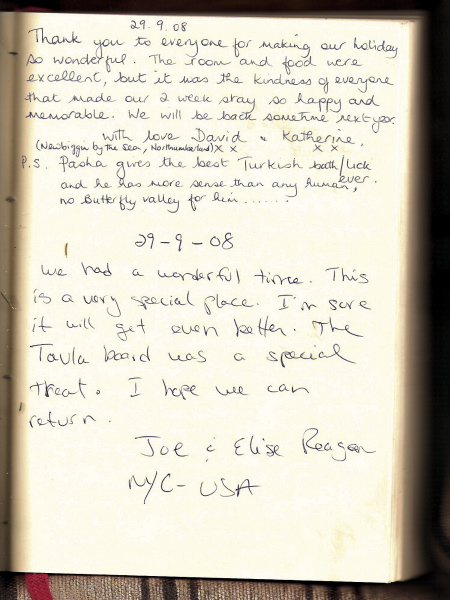 29.9.08
Thank you to everyone for making our holiday
so wonderful. The room and food were
excellent, but it was the kindness of everyone
that made our 2 week stay so happy and
memorable. We will be back sometime next year.
With love David & Katherine.
(Newbiggin by the Sea, Northumberland) x x x x
P.S. Pasha gives the best Turkish bath/lick
ever.
and he has more sense than any human,
no Butterfly valley for him ......
29-9-08
We had a wonderful time. This
is a very special place. I'm sure
it will get even better. The
Tavla board was a special
treat. I hope we can
return.
Joe & Elise Reagan
NYC- USA